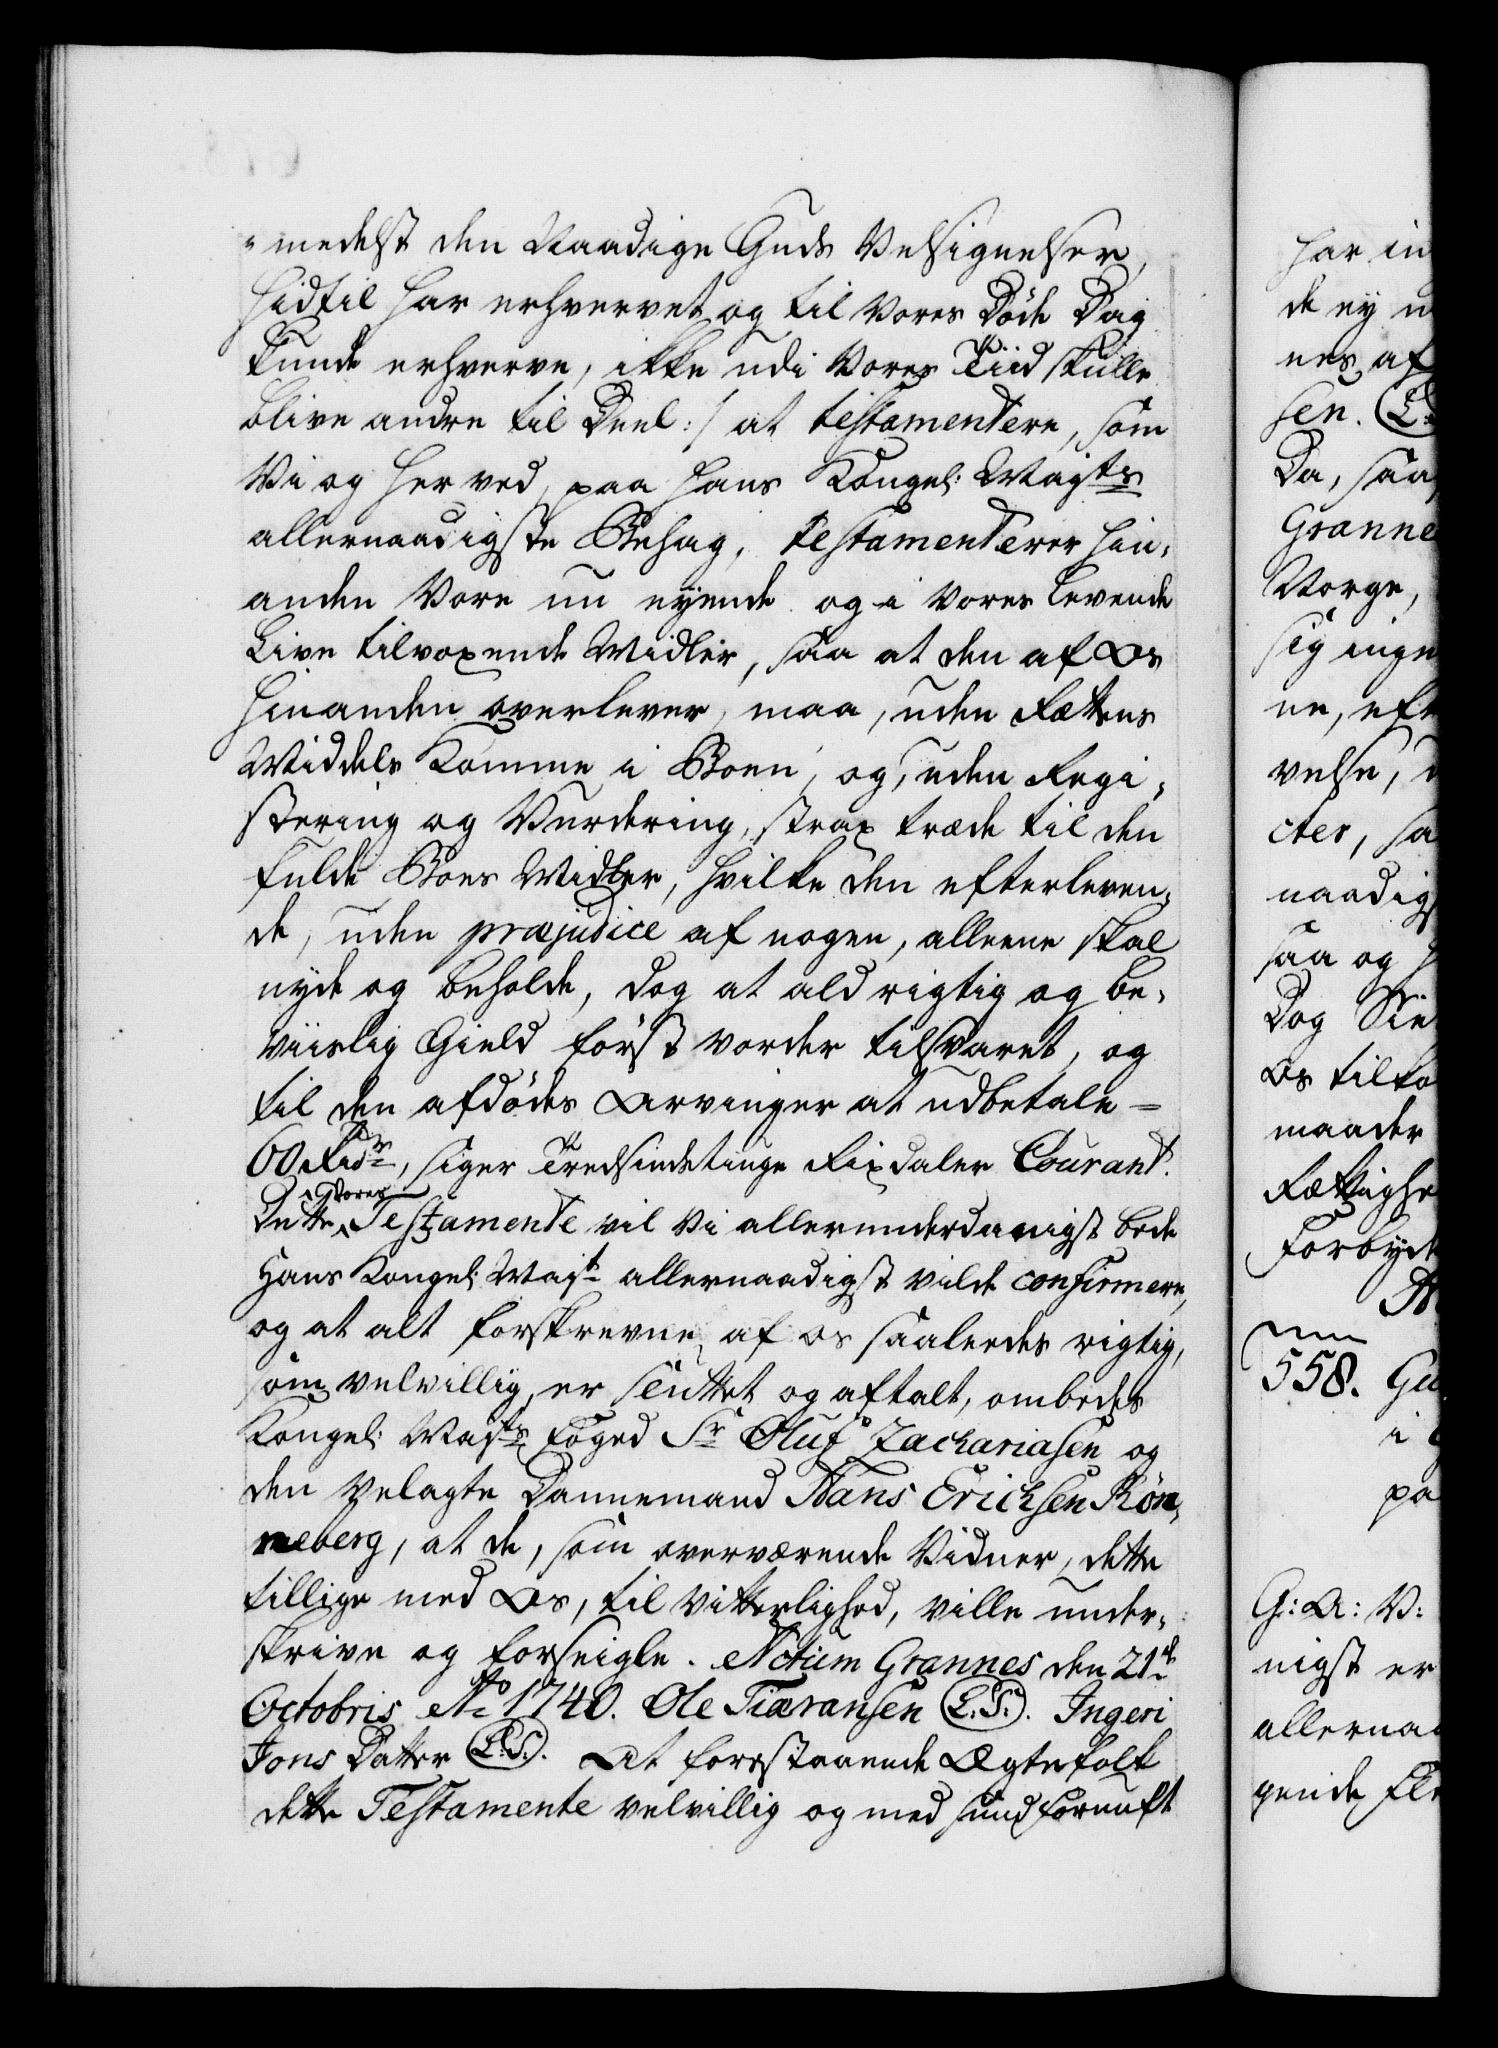 "medelst den Naadige Guds Velsignelser,
hidtil har erhvervet og til Vores Döde Dag
kunde erhverve, ikke udi Vores Tiid skulle
blive andre til Deel :/ at testamentere, som
Vi og her ved, paa Hans Kongel: Mayts
allernaadigste Behag, testamenterer hin,
anden Vore nu eyende og i Vores levende
Live tilvoxende Midler, saa at den af Os
hinanden overlever, maa, uden Rettens
Middels Komme i Boen, og, uden Regi,
stering og Vurdering, strax træde til den
fulde Boes Midler, hvilke den efterleven,
de, uden præjudice af nogen, alleene skal
nyde og beholde, dog at ald rigtig og be,
viislig Gield först vorder tilsvaret, og
til den afdödes Arvinger at udbetale =
60 Rdr, siger Tredsindstiuge Rixdaler Courant.
Dette Vores Testamente vil Vi allerunderdanigst bede
Hans Kongel: Mayt allernaadigst vilde confirmere,
og at alt forskrevne af os saaledes rigtig,
som velvillig, er sluttet og aftalt, ombedes
Kongel: Mayts Foged Sr Oluf Zachariasen og
den Velagte Dannemand Hans Ericksen Rön,
neberg, at de, som overværende Vidner, dette
tillige med Os, til Vitterlighed, ville under,
skrive og forseigle. Actum Grannes den 21de
Octobris Ao 1740. Ole Tiæransen (L.S.). Ingeri
Jons Datter (L.S.). At forestaaende Ægtefolk
dette Testamente velvillig og med sund Fornuft
har in
de ey u
nes af
sen. (L:
Da, saa
Granne
Norge,
sig inge
ne, eft
velse,
cter, sa
naadigs
saa og h
Dog Sie
Os tilko
maader
Rettighe
Forbyde
558. Gu
i
pa
G: A: V:
nigst er
allernaa
gende Ele